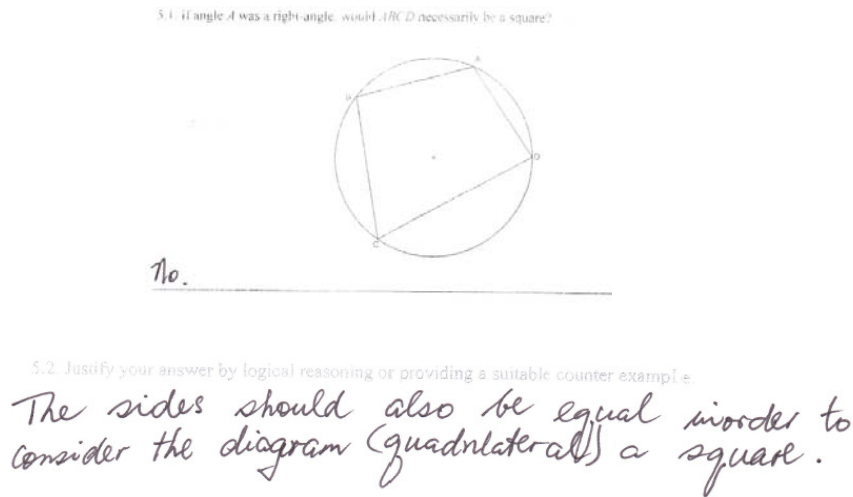 5.1. If angle A was a right-angle, would ABCD necessarily be a square?
A
B
D
C
No.
5.2. Justify your answer by logical reasoning or providing a suitable counter example.
The sides should also be equal inorder to
consider the diagram (quadrilateral) a square.